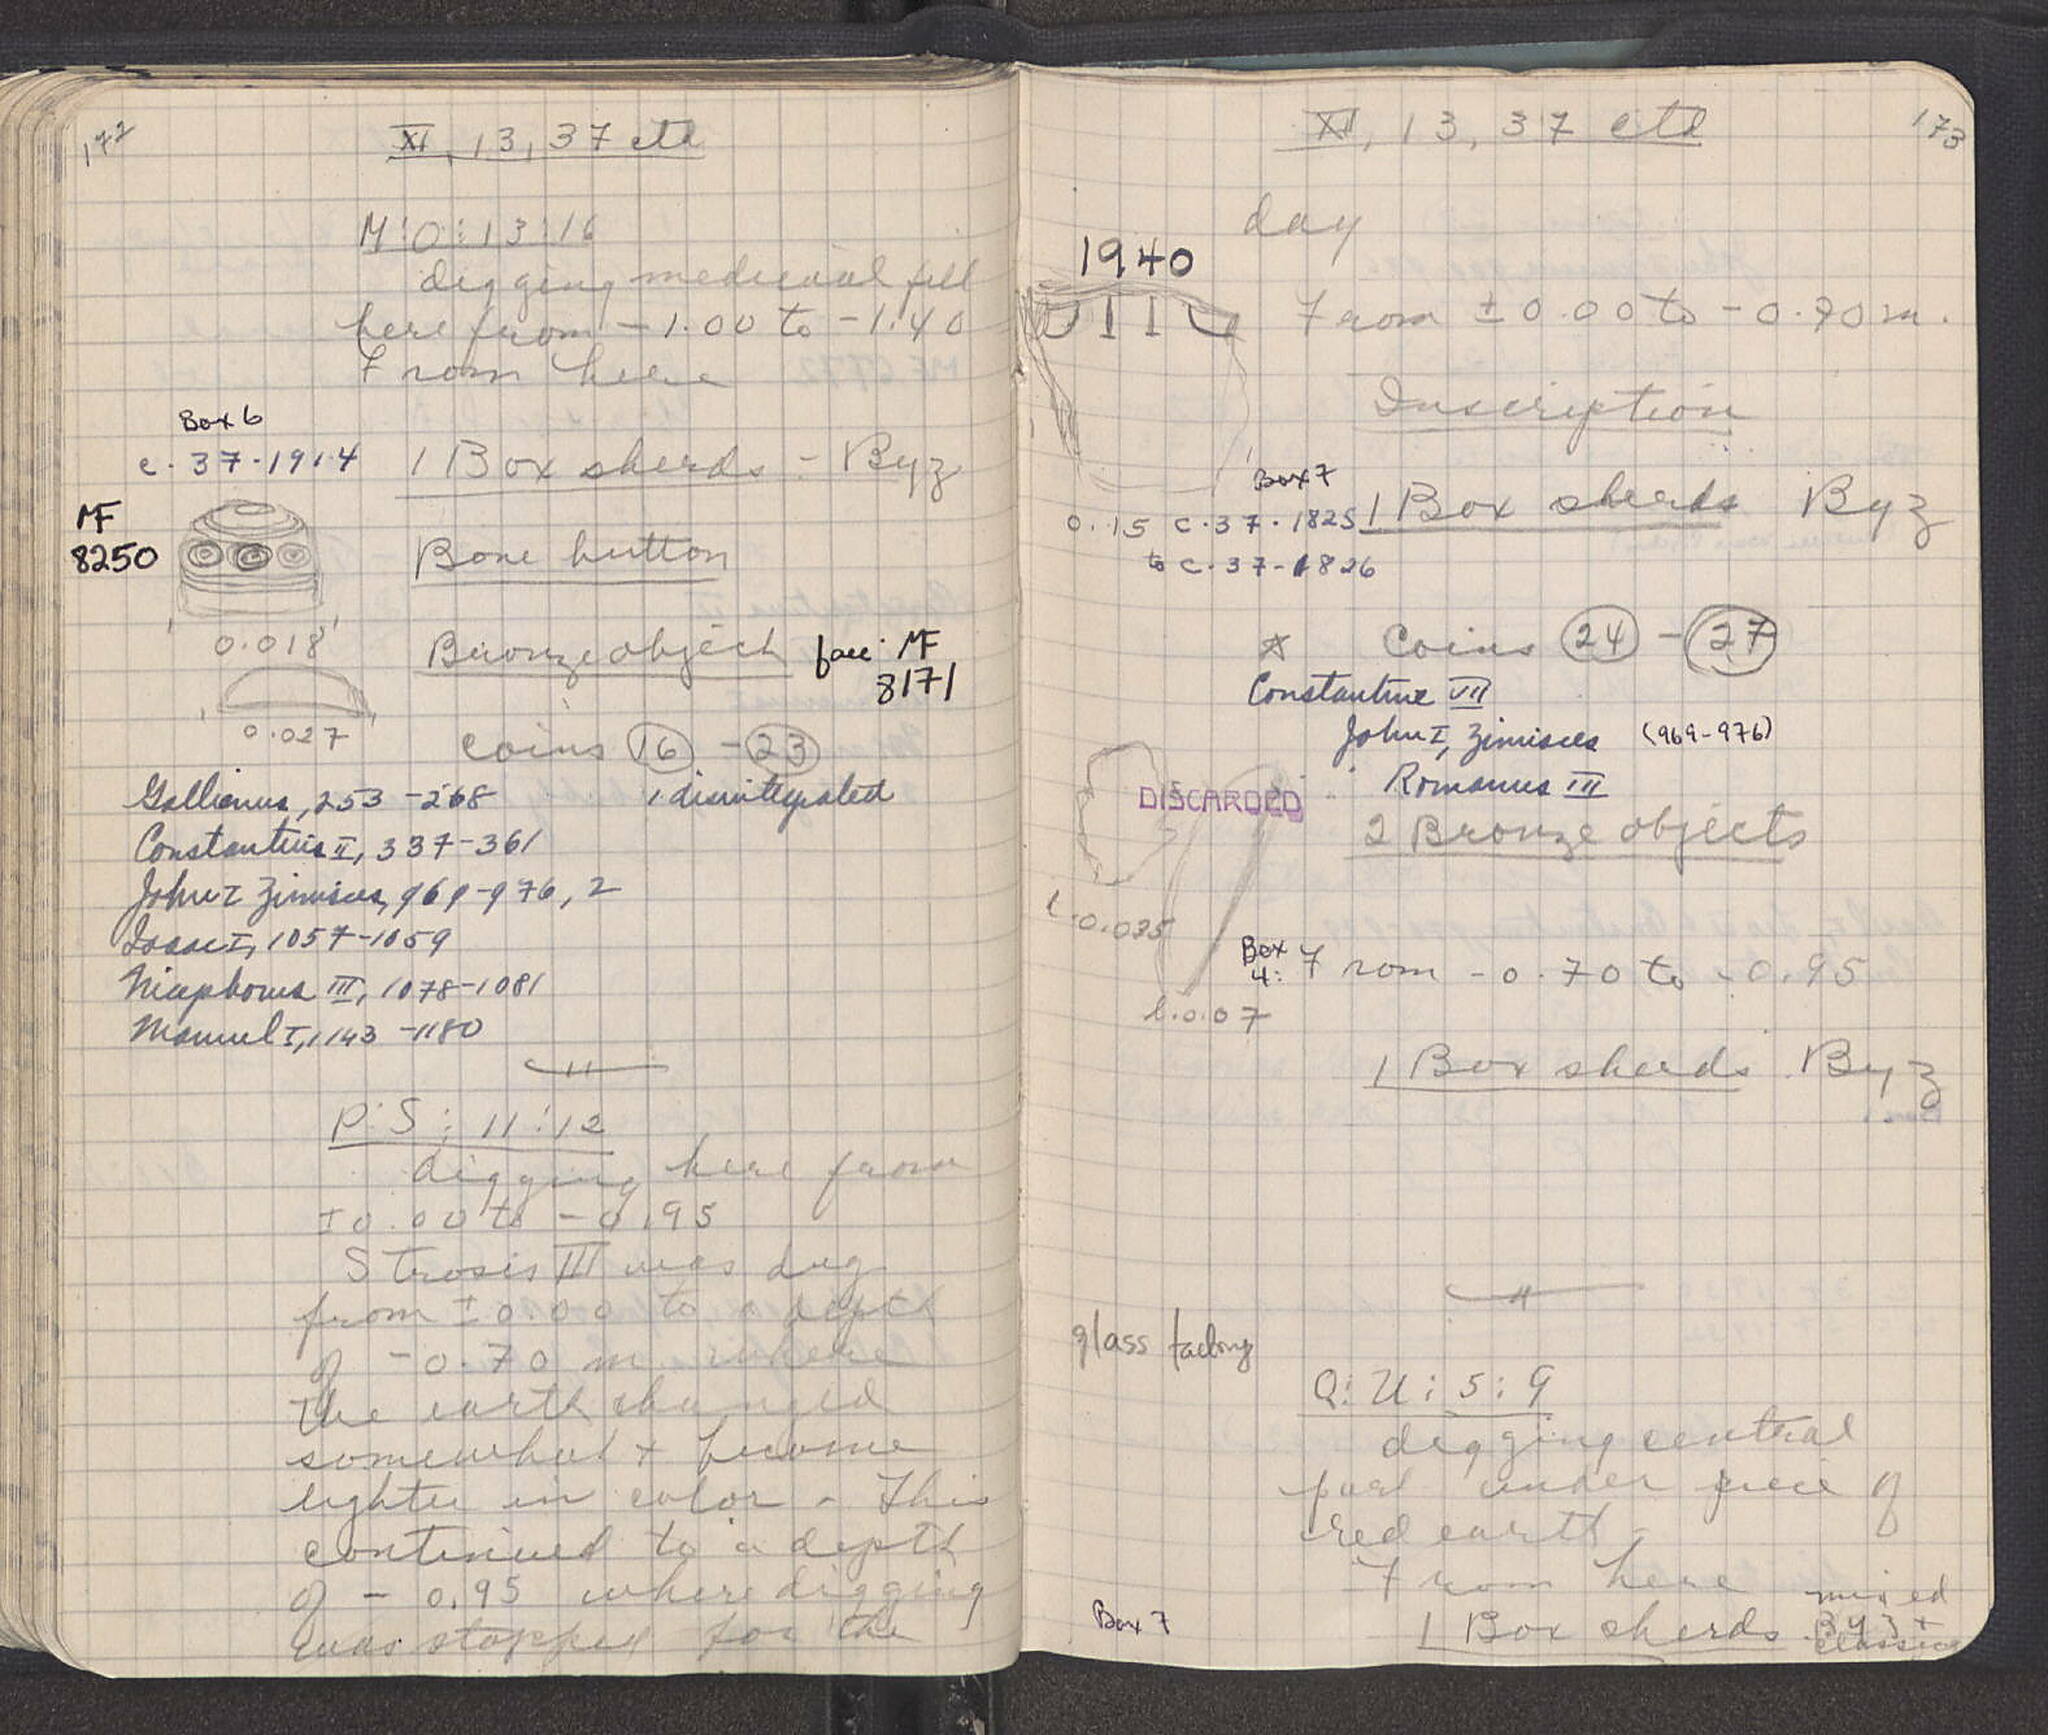 172
XI, 13, 37 ctd
M:O:13:16
digging medieval fill
here from -1.00 to -1.40
From here
Box 6
c. 37-1914
1 Box sherds - Byz
MF
8250
Bone button
0.018
Bronze object
face: MF
8171
0.027
coins 16 - 23
Gallienus, 253-268
1 disintegrated
Constantius II, 337-361
John I Zimisces, 969-976, 2
Isaac I, 1057-1059
Nicephorus III, 1078-1081
Manuel I, 1143-1180
P:S: 11:12
digging here from
±0.00 to -0.95
Strosis III was dug
from ±0.00 to a depth
of -0.70 m where
the earth changed
somewhat + became
lighter in color - This
continued to a depth
of - 0.95 where digging
was stopped for the
173
XI, 13, 37 ctd
day
1940
From ±0.00 to -0.70 m.
Inscription
Box 7
0.15 c.37.1825
1 Box sherds Byz
to c.37-1826
Coins 24 - 27
Constantine VII
John I, Zimisces (969-976)
Romanus III
DISCARDED
2 Bronze objects
l.0.035
Box
4:
From -0.70 to -0.95
l.0.07
1 Box sherds Byz
glass factory
Q:U:5:9
digging central
part under piece of
red earth -
From here
Box 7
1 Box sherds
mixed
Byz +
classic